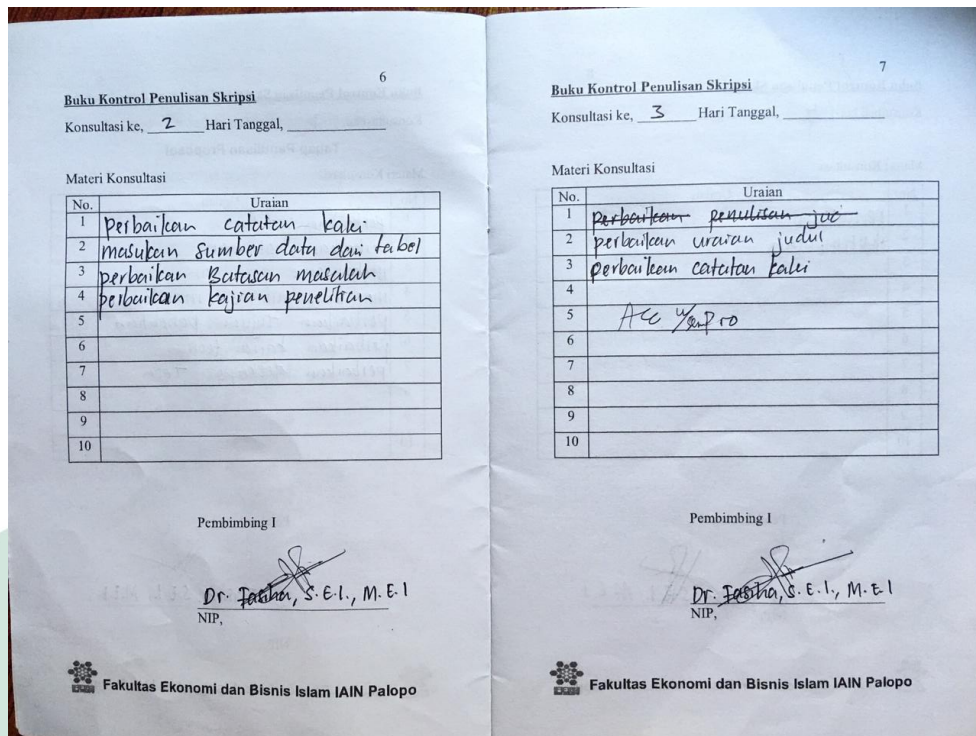 6
Buku Kontrol Penulisan Skripsi
Konsultasi ke, 2 Hari Tanggal,
Materi Konsultasi
No. Uraian
1 perbaikan catatan kaki
2 masukan sumber data dari tabel
3 perbaikan Batasan masalah
4 perbaikan kajian penelitian
5
6
7
8
9
10
Pembimbing I
Dr. Fasiha, S.E.I., M.E.I
NIP,
Fakultas Ekonomi dan Bisnis Islam IAIN Palopo
7
Buku Kontrol Penulisan Skripsi
Konsultasi ke, 3 Hari Tanggal,
Materi Konsultasi
No. Uraian
1 perbaikan penulisan
2 perbaikan uraian judul
3 perbaikan catatan kaki
4
5 Acc
6
7
8
9
10
Pembimbing I
Dr. Fasiha, S.E.I., M.E.I
NIP,
Fakultas Ekonomi dan Bisnis Islam IAIN Palopo